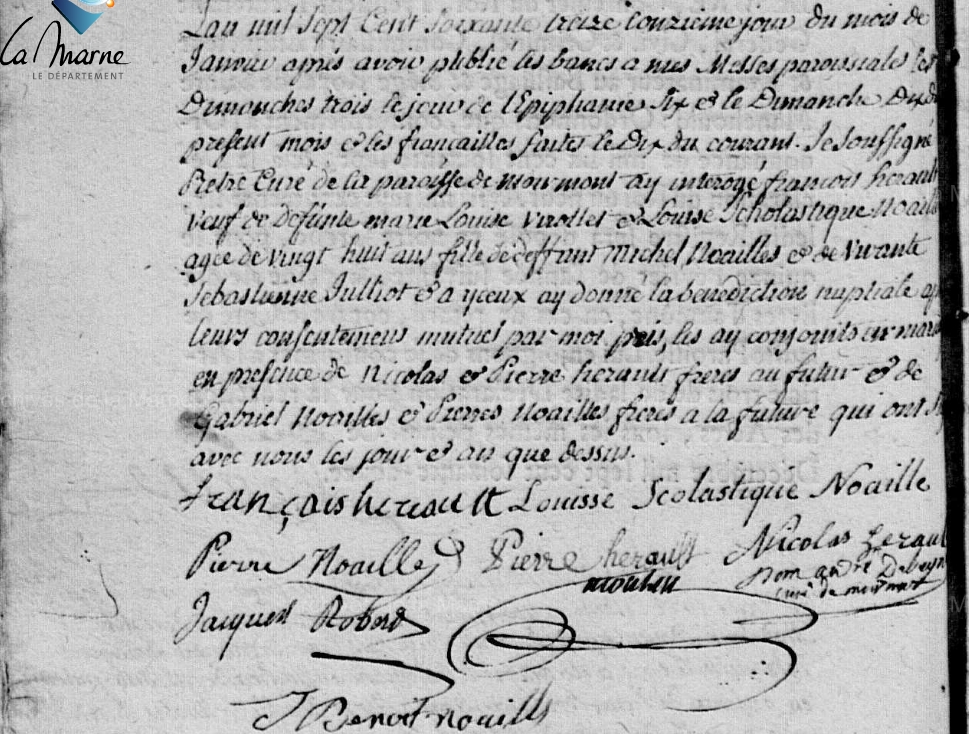 La Marne
LE DÉPARTEMENT
L'an mil sept cent soixante treize l'onzieme jour du mois de
Janvier après avoir publié les bancs a mes Messes paroissiales les
Dimanches trois le jour de l'Epiphanie six & le Dimanche Dix du
present mois & les fiancailles faites le Dix du courant. Je soussigné
Prêtre Curé de la paroisse de mourmont ay interogé françois herault
veuf de defünte marie Louise & Louise Scholastique Noaille
agée de vingt huit ans fille de deffunt Michel Noailles & de vivante
Sebastienne Julliot & a yceux ay donné la benediction nuptiale
leurs consentemens mutuel par moi pris, les ay conjoints en
en presence de Nicolas & Pierre herault freres au futur & de
Gabriel Noailles & Pierres Noailles freres a la future qui ont
avec nous les jour & an que dessus.
françois hereault Louisse Scolastique Noaille
Pierre Noaille Pierre herault Nicolas herault
moulin
Dom andré
curé de
Jacques Robert
J Benoit noaills